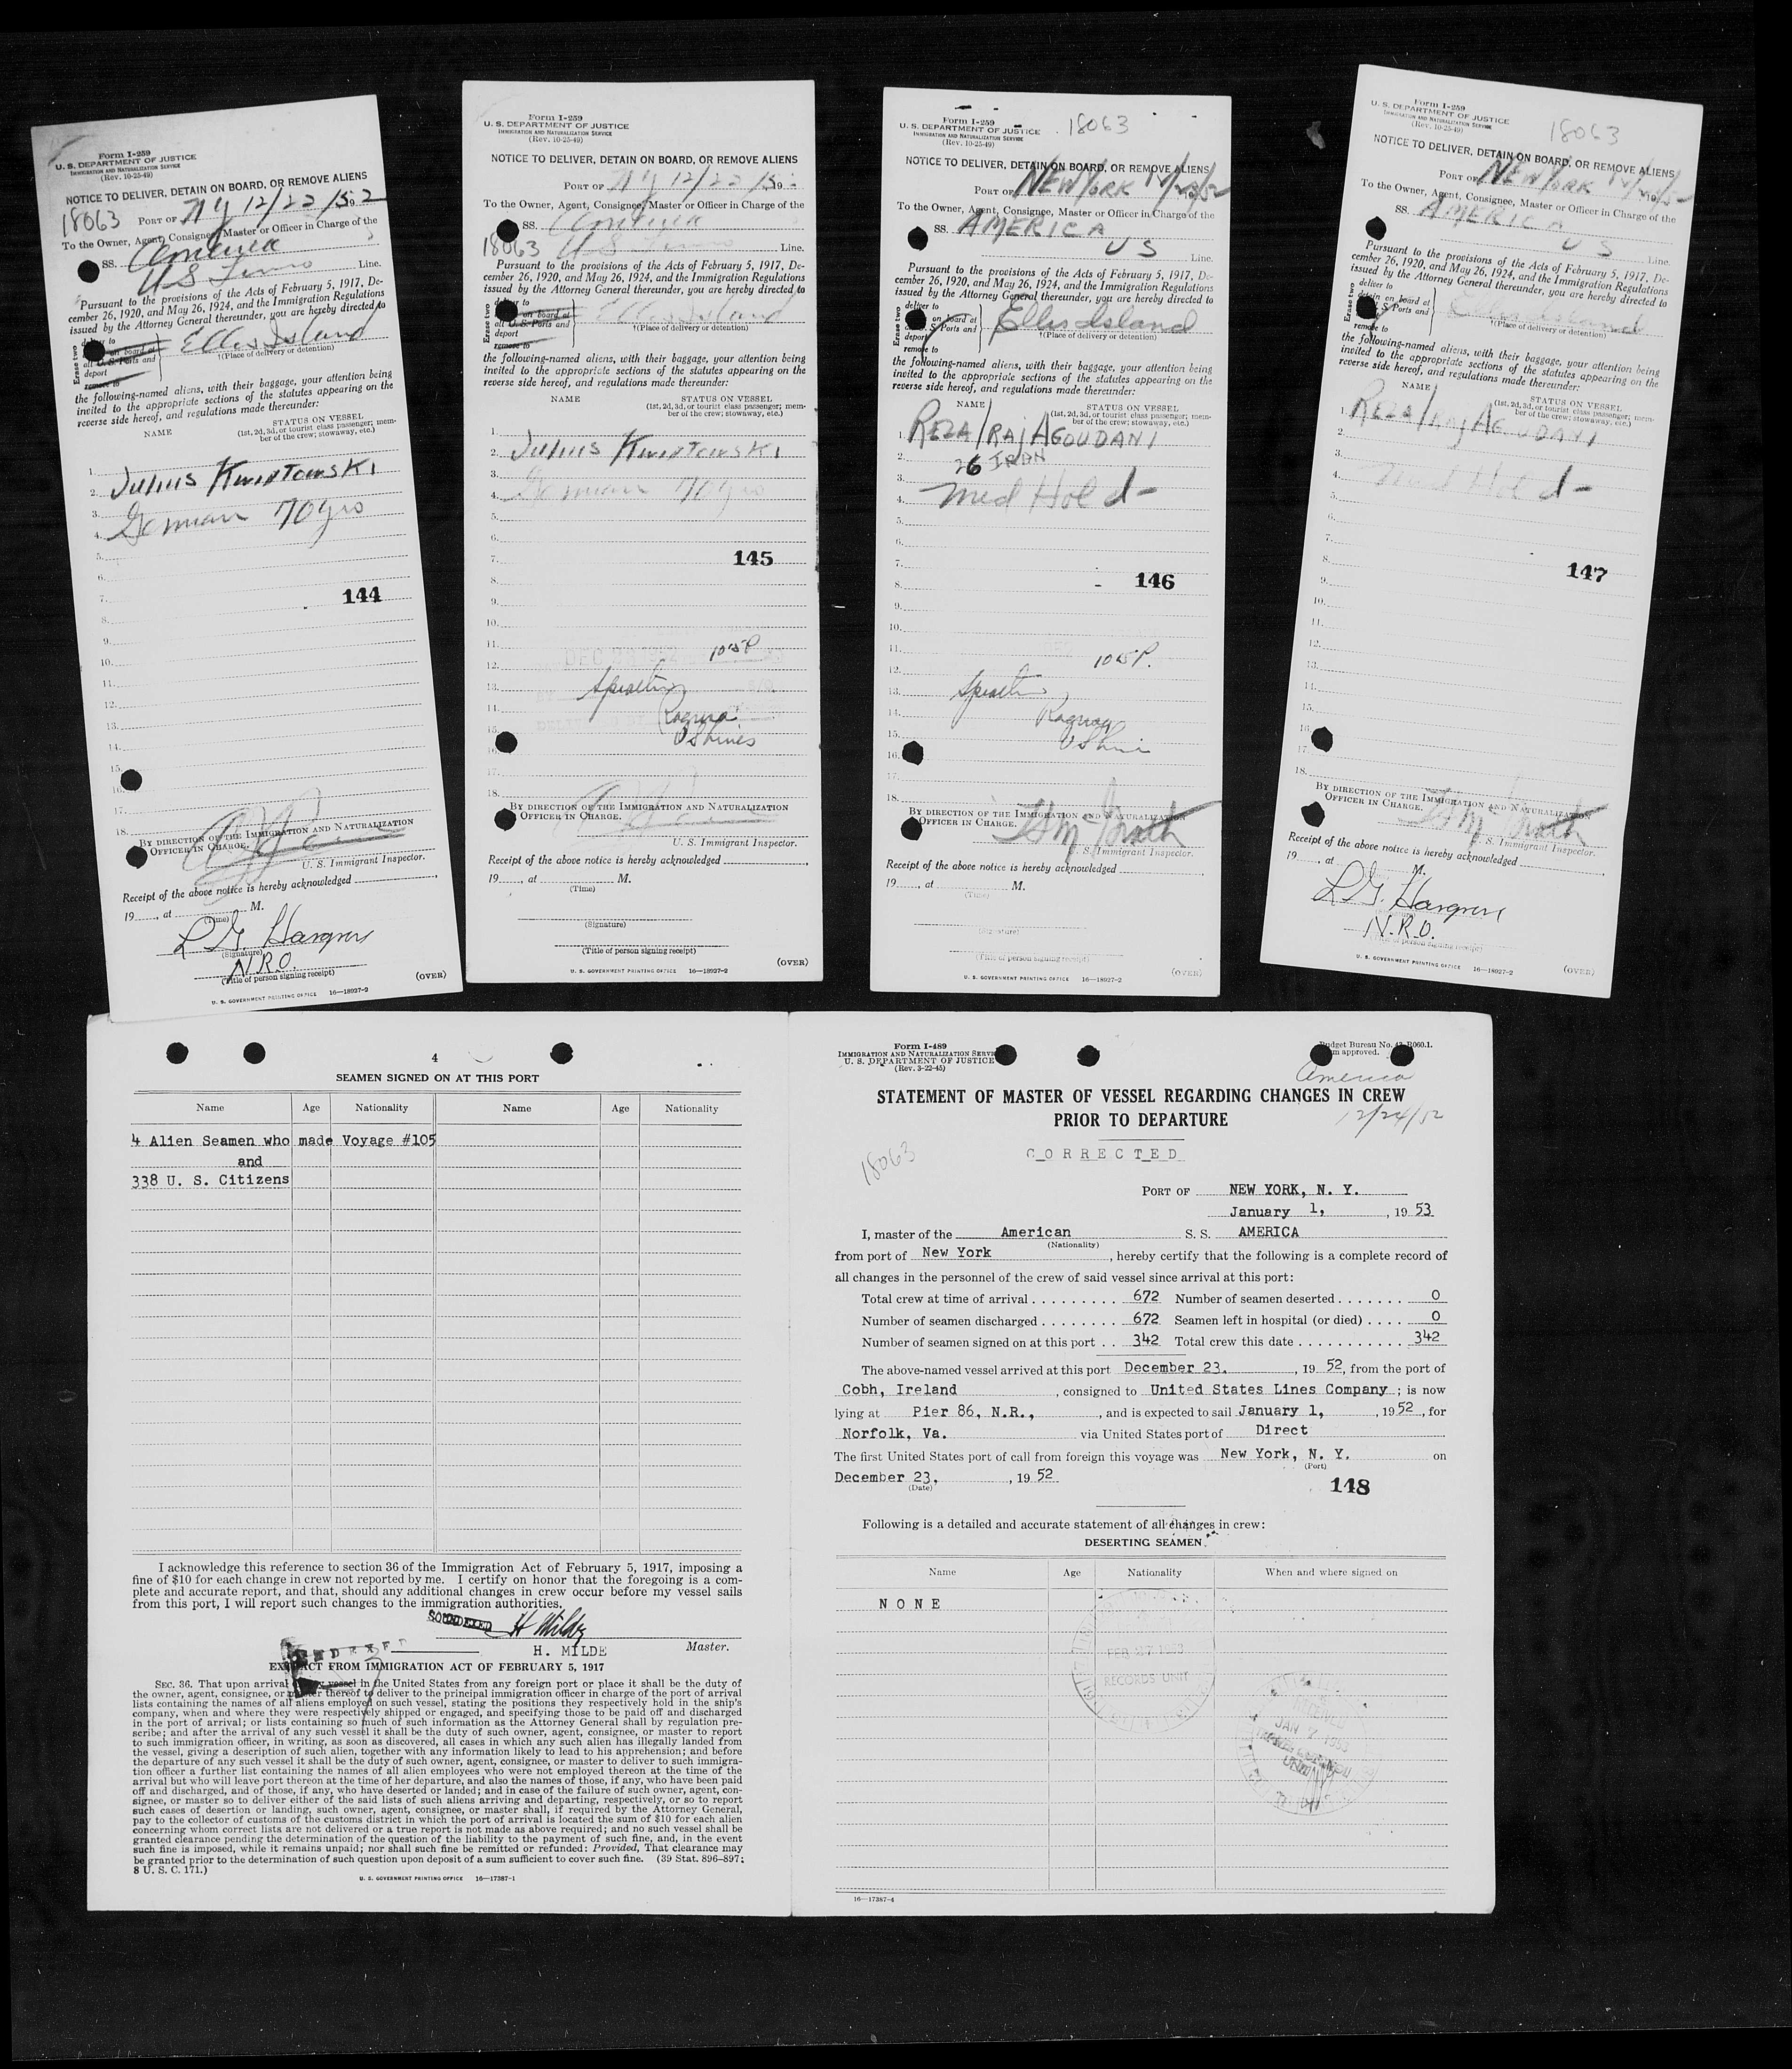 Form I-259
U. S. DEPARTMENT OF JUSTICE
IMMIGRATION AND NATURALIZATION SERVICE
(Rev. 10-25-49)
NOTICE TO DELIVER, DETAIN ON BOARD, OR REMOVE ALIENS
18063 PORT OF NY 12/22/1952
To the Owner, Agent, Consignee, Master or Officer in Charge of the
SS. America
US Lines Line.
Pursuant to the provisions of the Acts of February 5, 1917, De-
cember 26, 1920, and May 26, 1924, and the Immigration Regulations
issued by the Attorney General thereunder, you are hereby directed to
Erase two
on board at
all U. S. Ports and
deport
remove to
Ellis Island
(Place of delivery or detention)
the following-named aliens, with their baggage, your attention being
invited to the appropriate sections of the statutes appearing on the
reverse side hereof, and regulations made thereunder:
NAME STATUS ON VESSEL
(1st, 2d, 3d, or tourist class passenger; mem-
ber of the crew; stowaway, etc.)
1.
2. Julius Kwiatowski
3.
4. German 70 yrs
5.
6.
7. 144
8.
9.
10.
11.
12.
13.
14.
15.
16.
17.
18.
BY DIRECTION OF THE IMMIGRATION AND NATURALIZATION
OFFICER IN CHARGE.
U. S. Immigrant Inspector.
Receipt of the above notice is hereby acknowledged
19, at M.
(Time)
L G. Hargrove
(Signature)
N.R.O.
(Title of person signing receipt)
(OVER)
U. S. GOVERNMENT PRINTING OFFICE 16—18927-2
Form I-259
U. S. DEPARTMENT OF JUSTICE
IMMIGRATION AND NATURALIZATION SERVICE
(Rev. 10-25-49)
NOTICE TO DELIVER, DETAIN ON BOARD, OR REMOVE ALIENS
PORT OF NY 12/22/195
To the Owner, Agent, Consignee, Master or Officer in Charge of the
SS. America
18063 US Lines Line.
Pursuant to the provisions of the Acts of February 5, 1917, De-
cember 26, 1920, and May 26, 1924, and the Immigration Regulations
issued by the Attorney General thereunder, you are hereby directed to
Erase two
on board at
all U. S. Ports and
deport
remove to
Ellis Island
(Place of delivery or detention)
the following-named aliens, with their baggage, your attention being
invited to the appropriate sections of the statutes appearing on the
reverse side hereof, and regulations made thereunder:
NAME STATUS ON VESSEL
(1st, 2d, 3d, or tourist class passenger; mem-
ber of the crew; stowaway, etc.)
1.
2. Julius Kwiatowski
3.
4. German 70 yrs
5.
6.
7. 145
8.
9.
10.
11.
12. 1005P
13.
14.
15. US Lines
16.
17.
18.
BY DIRECTION OF THE IMMIGRATION AND NATURALIZATION
OFFICER IN CHARGE.
U. S. Immigrant Inspector.
Receipt of the above notice is hereby acknowledged
19, at M.
(Time)
(Signature)
(Title of person signing receipt)
(OVER)
U. S. GOVERNMENT PRINTING OFFICE 16—18927-2
Form I-259
U. S. DEPARTMENT OF JUSTICE 18063
IMMIGRATION AND NATURALIZATION SERVICE
(Rev. 10-25-49)
NOTICE TO DELIVER, DETAIN ON BOARD, OR REMOVE ALIENS
PORT OF NEW YORK 12/23/52
To the Owner, Agent, Consignee, Master or Officer in Charge of the
SS. AMERICA
US Line.
Pursuant to the provisions of the Acts of February 5, 1917, De-
cember 26, 1920, and May 26, 1924, and the Immigration Regulations
issued by the Attorney General thereunder, you are hereby directed to
Erase two
on board at
S. Ports and
remove to
Ellis Island
(Place of delivery or detention)
the following-named aliens, with their baggage, your attention being
invited to the appropriate sections of the statutes appearing on the
reverse side hereof, and regulations made thereunder:
NAME STATUS ON VESSEL
(1st, 2d, 3d, or tourist class passenger; mem-
ber of the crew; stowaway, etc.)
1. REZA / RAJ AGOUDANI
2. 26 IRAN
3.
4. Med Hold-
5.
6.
7.
8. 146
9.
10.
11.
12. 1005P.
13.
14.
15.
16.
17.
18.
BY DIRECTION OF THE IMMIGRATION AND NATURALIZATION
OFFICER IN CHARGE.
U. S. Immigrant Inspector.
Receipt of the above notice is hereby acknowledged
19, at M.
(Time)
(Signature)
(Title of person signing receipt)
(OVER)
U. S. GOVERNMENT PRINTING OFFICE 16—18927-2
Form I-259
U. S. DEPARTMENT OF JUSTICE
IMMIGRATION AND NATURALIZATION SERVICE
(Rev. 10-25-49) 18063
NOTICE TO DELIVER, DETAIN ON BOARD, OR REMOVE ALIENS
PORT OF NEW YORK 12/23/52
To the Owner, Agent, Consignee, Master or Officer in Charge of the
SS. AMERICA
US Line.
Pursuant to the provisions of the Acts of February 5, 1917, De-
cember 26, 1920, and May 26, 1924, and the Immigration Regulations
issued by the Attorney General thereunder, you are hereby directed to
Erase two
deliver to
detain on board at
S. Ports and
remove to
Ellis Island
(Place of delivery or detention)
the following-named aliens, with their baggage, your attention being
invited to the appropriate sections of the statutes appearing on the
reverse side hereof, and regulations made thereunder:
NAME STATUS ON VESSEL
(1st, 2d, 3d, or tourist class passenger; mem-
ber of the crew; stowaway, etc.)
1. REZA / RAJ AGOUDANI
2.
3.
4. Med Hold-
5.
6.
7.
8. 147
9.
10.
11.
12.
13.
14.
15.
16.
17.
18.
BY DIRECTION OF THE IMMIGRATION AND NATURALIZATION
OFFICER IN CHARGE.
U. S. Immigrant Inspector.
Receipt of the above notice is hereby acknowledged
19, at M.
L G. Hargrove
N.R.O.
(Title of person signing receipt)
(OVER)
U. S. GOVERNMENT PRINTING OFFICE 16—18927-2
4
SEAMEN SIGNED ON AT THIS PORT
Name Age Nationality Name Age Nationality
4 Alien Seamen who made Voyage #105
and
338 U. S. Citizens
I acknowledge this reference to section 36 of the Immigration Act of February 5, 1917, imposing a
fine of $10 for each change in crew not reported by me. I certify on honor that the foregoing is a com-
plete and accurate report, and that, should any additional changes in crew occur before my vessel sails
from this port, I will report such changes to the immigration authorities.
H Milde
H. MILDE Master.
INDEXED
EXTRACT FROM IMMIGRATION ACT OF FEBRUARY 5, 1917
SEC. 36. That upon arrival of any vessel in the United States from any foreign port or place it shall be the duty of
the owner, agent, consignee, or master thereof to deliver to the principal immigration officer in charge of the port of arrival
lists containing the names of all aliens employed on such vessel, stating the positions they respectively hold in the ship's
company, when and where they were respectively shipped or engaged, and specifying those to be paid off and discharged
in the port of arrival; or lists containing so much of such information as the Attorney General shall by regulation pre-
scribe; and after the arrival of any such vessel it shall be the duty of such owner, agent, consignee, or master to report
to such immigration officer, in writing, as soon as discovered, all cases in which any such alien has illegally landed from
the vessel, giving a description of such alien, together with any information likely to lead to his apprehension; and before
the departure of any such vessel it shall be the duty of such owner, agent, consignee, or master to deliver to such immigra-
tion officer a further list containing the names of all alien employees who were not employed thereon at the time of the
arrival but who will leave port thereon at the time of her departure, and also the names of those, if any, who have been paid
off and discharged, and of those, if any, who have deserted or landed; and in case of the failure of such owner, agent, con-
signee, or master so to deliver either of the said lists of such aliens arriving and departing, respectively, or so to report
such cases of desertion or landing, such owner, agent, consignee, or master shall, if required by the Attorney General,
pay to the collector of customs of the customs district in which the port of arrival is located the sum of $10 for each alien
concerning whom correct lists are not delivered or a true report is not made as above required; and no such vessel shall be
granted clearance pending the determination of the question of the liability to the payment of such fine, and, in the event
such fine is imposed, while it remains unpaid; nor shall such fine be remitted or refunded: Provided, That clearance may
be granted prior to the determination of such question upon deposit of a sum sufficient to cover such fine. (39 Stat. 896–897;
8 U. S. C. 171.)
U. S. GOVERNMENT PRINTING OFFICE 16—17387-1
Form I-489
IMMIGRATION AND NATURALIZATION SERVICE
U. S. DEPARTMENT OF JUSTICE
(Rev. 3-22-45)
Budget Bureau No. 43-R060.1.
approved.
America
12/24/52
STATEMENT OF MASTER OF VESSEL REGARDING CHANGES IN CREW
PRIOR TO DEPARTURE
18063
CORRECTED
PORT OF NEW YORK, N. Y.
January 1, , 19 53
I, master of the American S. S. AMERICA
(Nationality)
from port of New York , hereby certify that the following is a complete record of
all changes in the personnel of the crew of said vessel since arrival at this port:
Total crew at time of arrival 672 Number of seamen deserted 0
Number of seamen discharged 672 Seamen left in hospital (or died) 0
Number of seamen signed on at this port 342 Total crew this date 342
The above-named vessel arrived at this port December 23, , 19 52, from the port of
Cobh, Ireland , consigned to United States Lines Company ; is now
lying at Pier 86, N.R., , and is expected to sail January 1, , 19 52 , for
Norfolk, Va. via United States port of Direct
The first United States port of call from foreign this voyage was New York, N. Y. on
(Port)
December 23, , 19 52
(Date)
148
Following is a detailed and accurate statement of all changes in crew:
DESERTING SEAMEN
Name Age Nationality When and where signed on
NONE
FEB 1953
RECORDS UNIT
RECEIVED
JAN 7 1953
16—17387-4